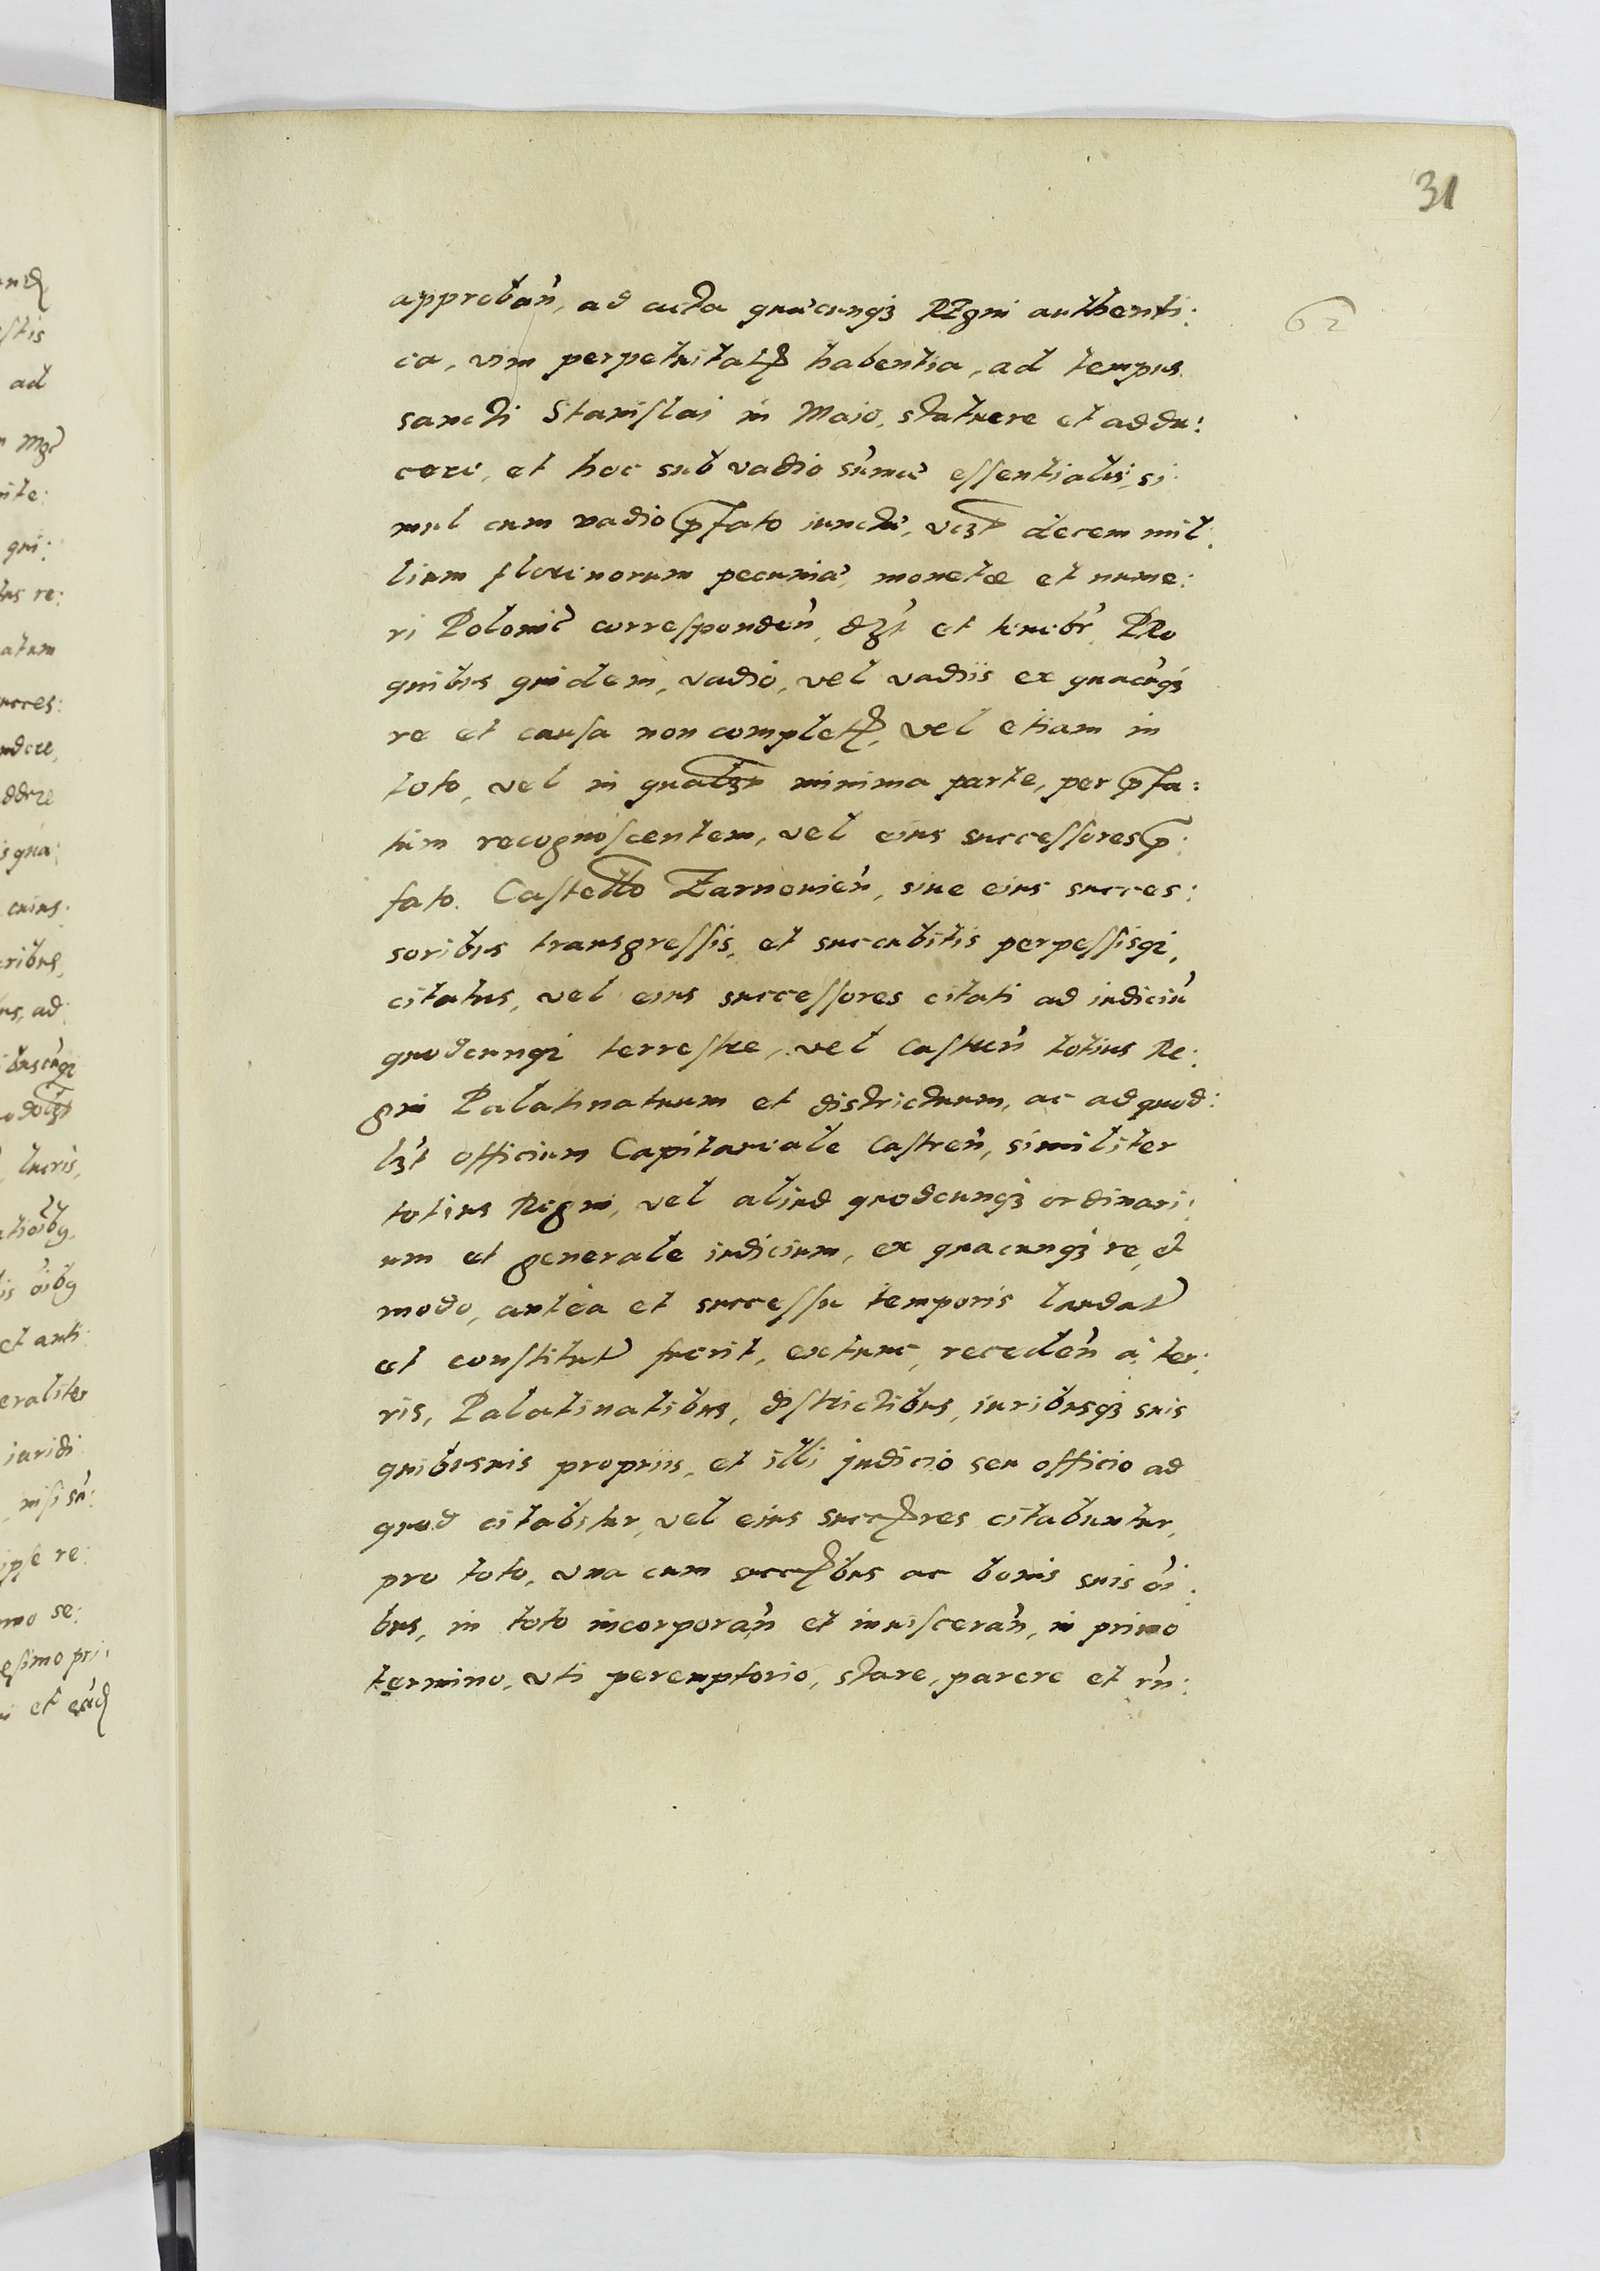 31
62
approban̄, ad acta quæcunqȝ Regni authenti:
ca, vim perpetuitatꝭ habentia, ad tempus
sancti Stanislai in Maio, statuere et addu:
cere, et hoc sub vadio sum̄æ essentialis, si
mul cum vadio p̄fato iunctæ, vcȝt decem mil:
lium florinorum pecuniæ, monetæ et nume:
ri Polonic̄ corresponden̄, dȝt et tenebr̄ Pro
quibus quidem, vadio, vel vadiis ex quacūqȝ
re et causa non completꝭ, vel etiam in
toto, vel in qualȝt minima parte, per p̄fa:
tum recognoscentem, vel eius successores p̄:
fato Castello Zarnouien̄, siue eius succes:
soribus transgressis, et succubitis perpessisqȝ,
citatus, vel eius successores citati ad iudiciū
quodcunqȝ terrestre, vel castren̄ totius Re:
gni Palatinatuum et districtuum, ac ad quod:
lȝt officium Capitaneale Castren̄, similiter
totius Regni, vel aliud quodcunqȝ ordinari:
um et generale iudicium, ex quacunqȝ re, et
modo, antea et successu temporis laudat̄
et constitut̄ fuerit, extunc, receden̄ à ter:
ris, Palatinatibus, districtibus, iuribusqȝ suis
quibusuis propriis, et illi judicio seu officio ad
quod citabitur, vel eius succꝭres citabuntur,
pro toto, vna cum succꝭbus ac bonis suis oī:
bus, in toto incorporan̄ et inuisceran̄, in primo
termino, vti peremptorio, stare, parere et rn̄: